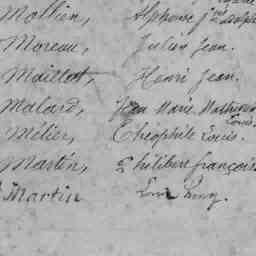 Mollien, Alphonse
Moreau, Julien Jean.
Maillot, Henri Jean.
Malard, Jean Marie Mathurin
Louis.
Mélier, Théophile Louis.
Martin, Philibert François
Martin